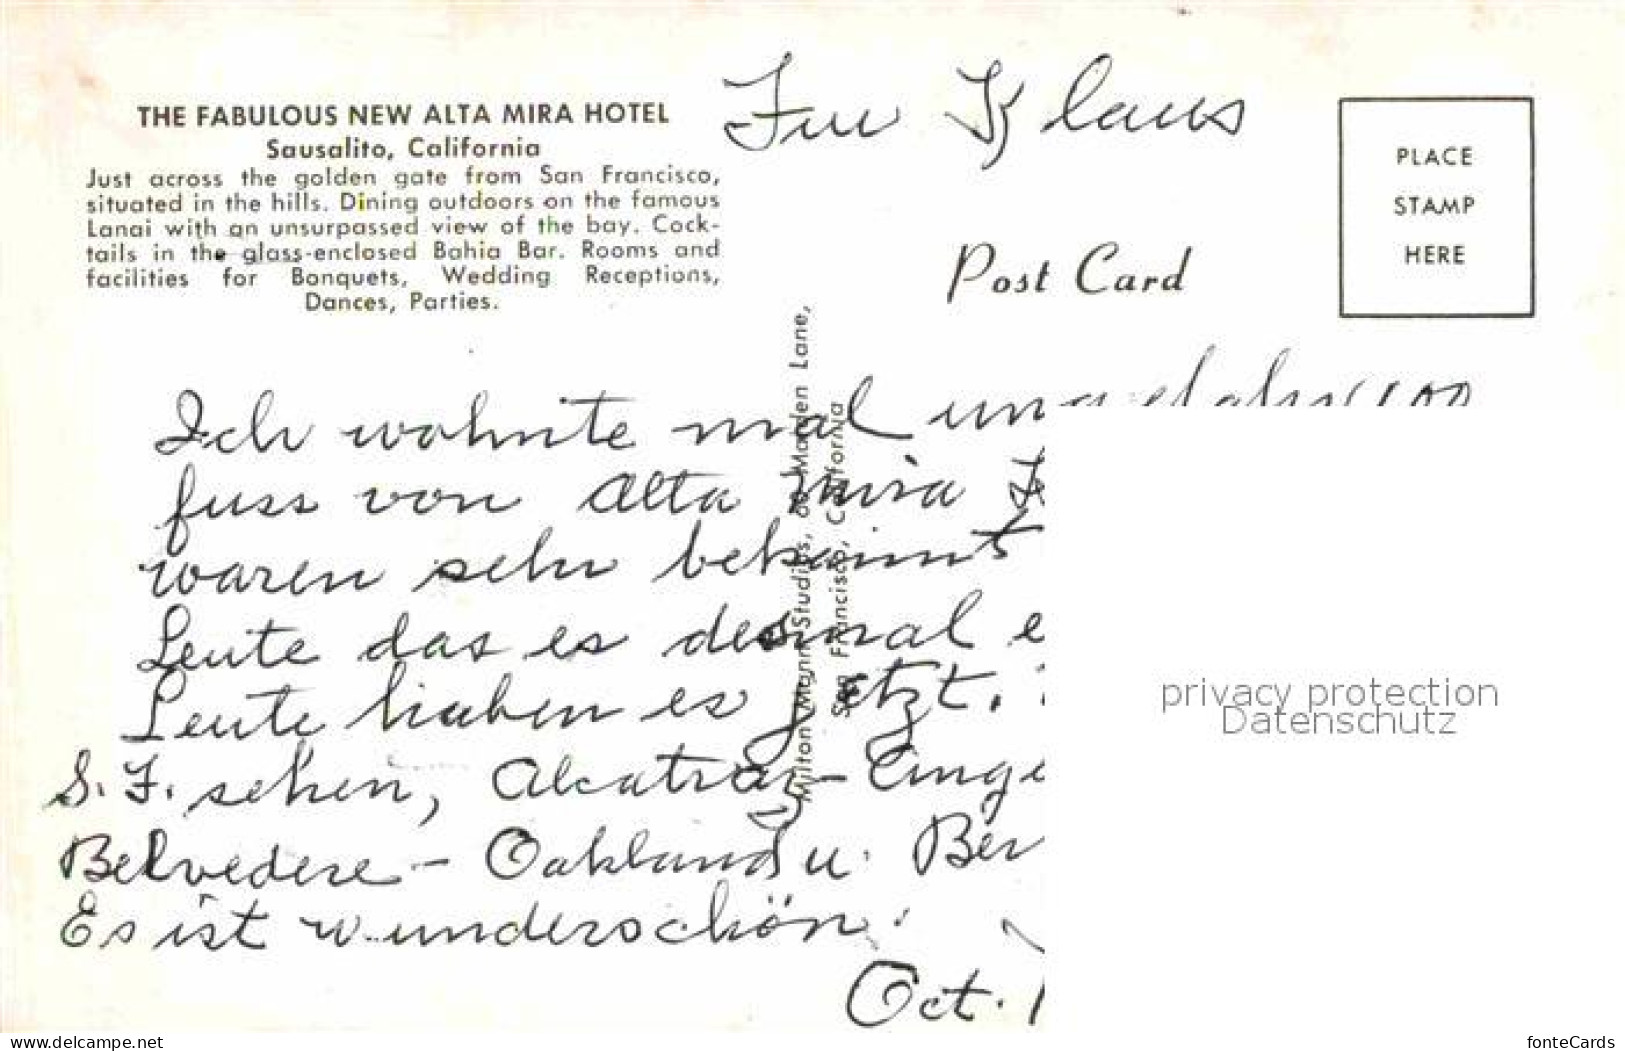 THE FABULOUS NEW ALTA MIRA HOTEL
Sausalito, California
Just across the golden gate from San Francisco,
situated in the hills. Dining outdoors on the famous
Lanai with an unsurpassed view of the bay. Cock-
tails in the glass-enclosed Bahia Bar. Rooms and
facilities for Banquets, Wedding Receptions,
Dances, Parties.
Klaus
PLACE
STAMP
HERE
Post Card
Milton Mann Studios, 60 Maiden Lane,
San Francisco, California
Ich wohnte mal
fuss von Alta Mira
waren sehr bekannt
Leute das es desmal
Leute haben es jetzt.
S.F. sehen, Alcatraz -
Belvedere - Oakland u. Ber
Es ist wunderschön.
Oct.
privacy protection
Datenschutz
www.delcampe.net
fonteCards